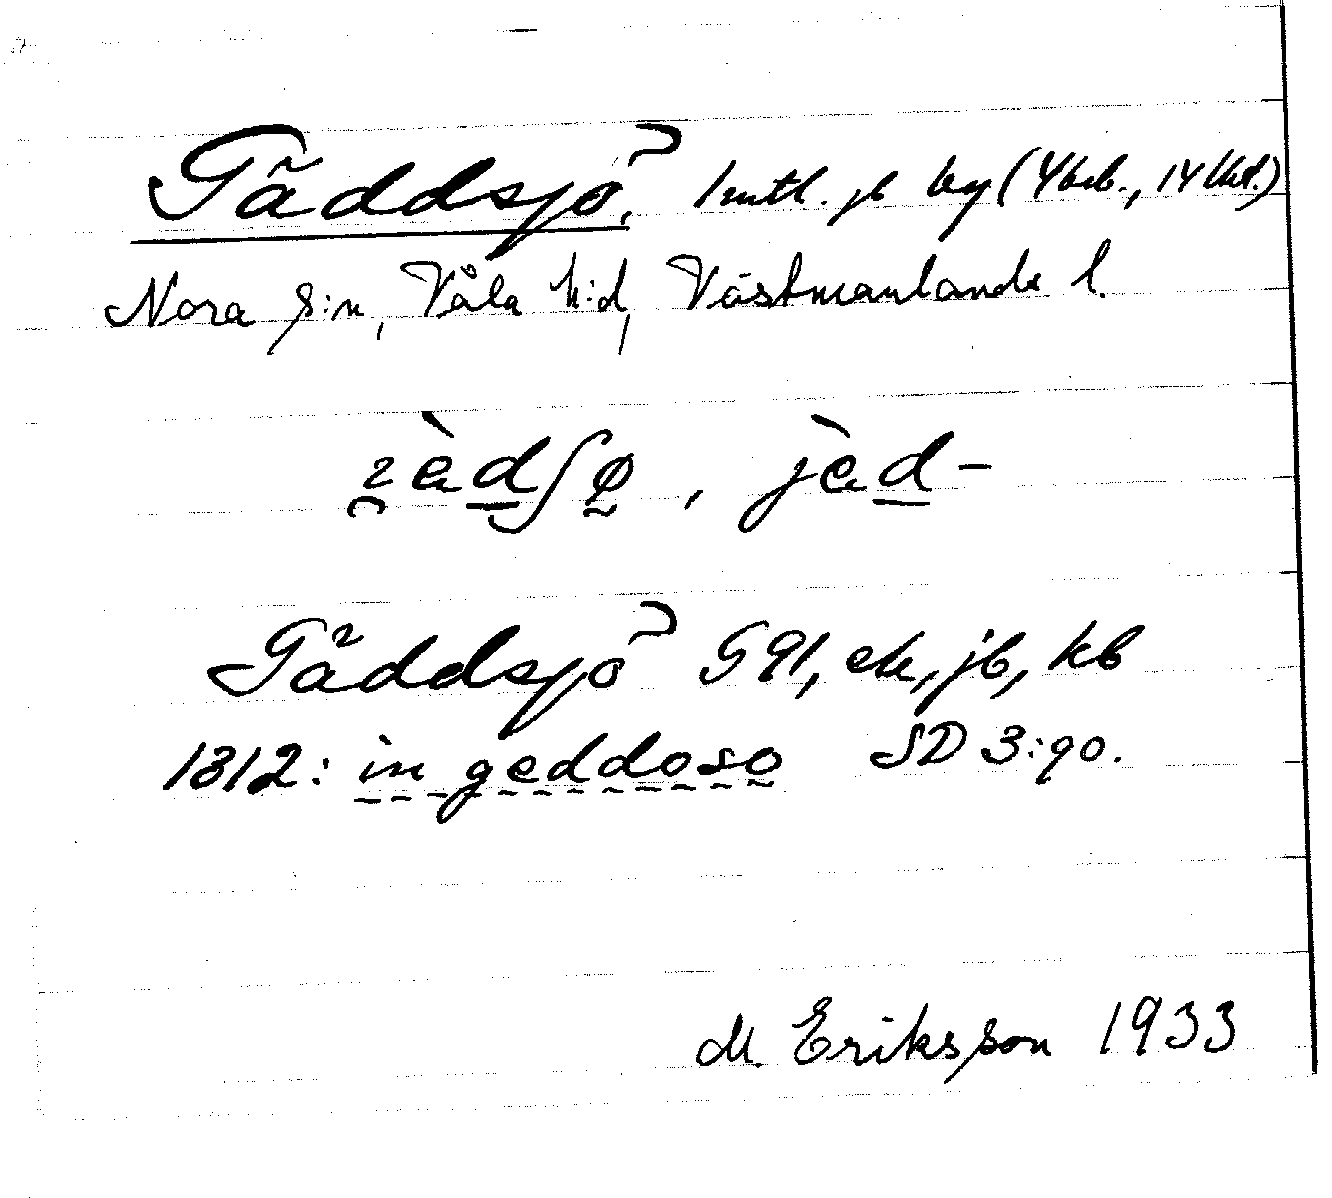 Gäddsjö, 1 mtl. jb by (4 brb., 14 lht.)
Nora s:n, Våla h:d, Västmanlands l.
jèd-
Gäddsjö G 91, ek, jb, kb
1312: in geddoso SD 3:90.
M Eriksson 1933